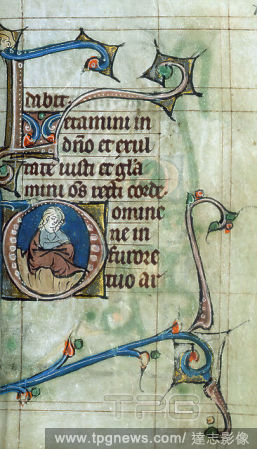 dabit.
Letamini in
dño et exul
tate iusti et glã
mini õs recti corde
Domine
ne in
furore
tuo ar
TPG
www.tpgnews.com/ 達志影像